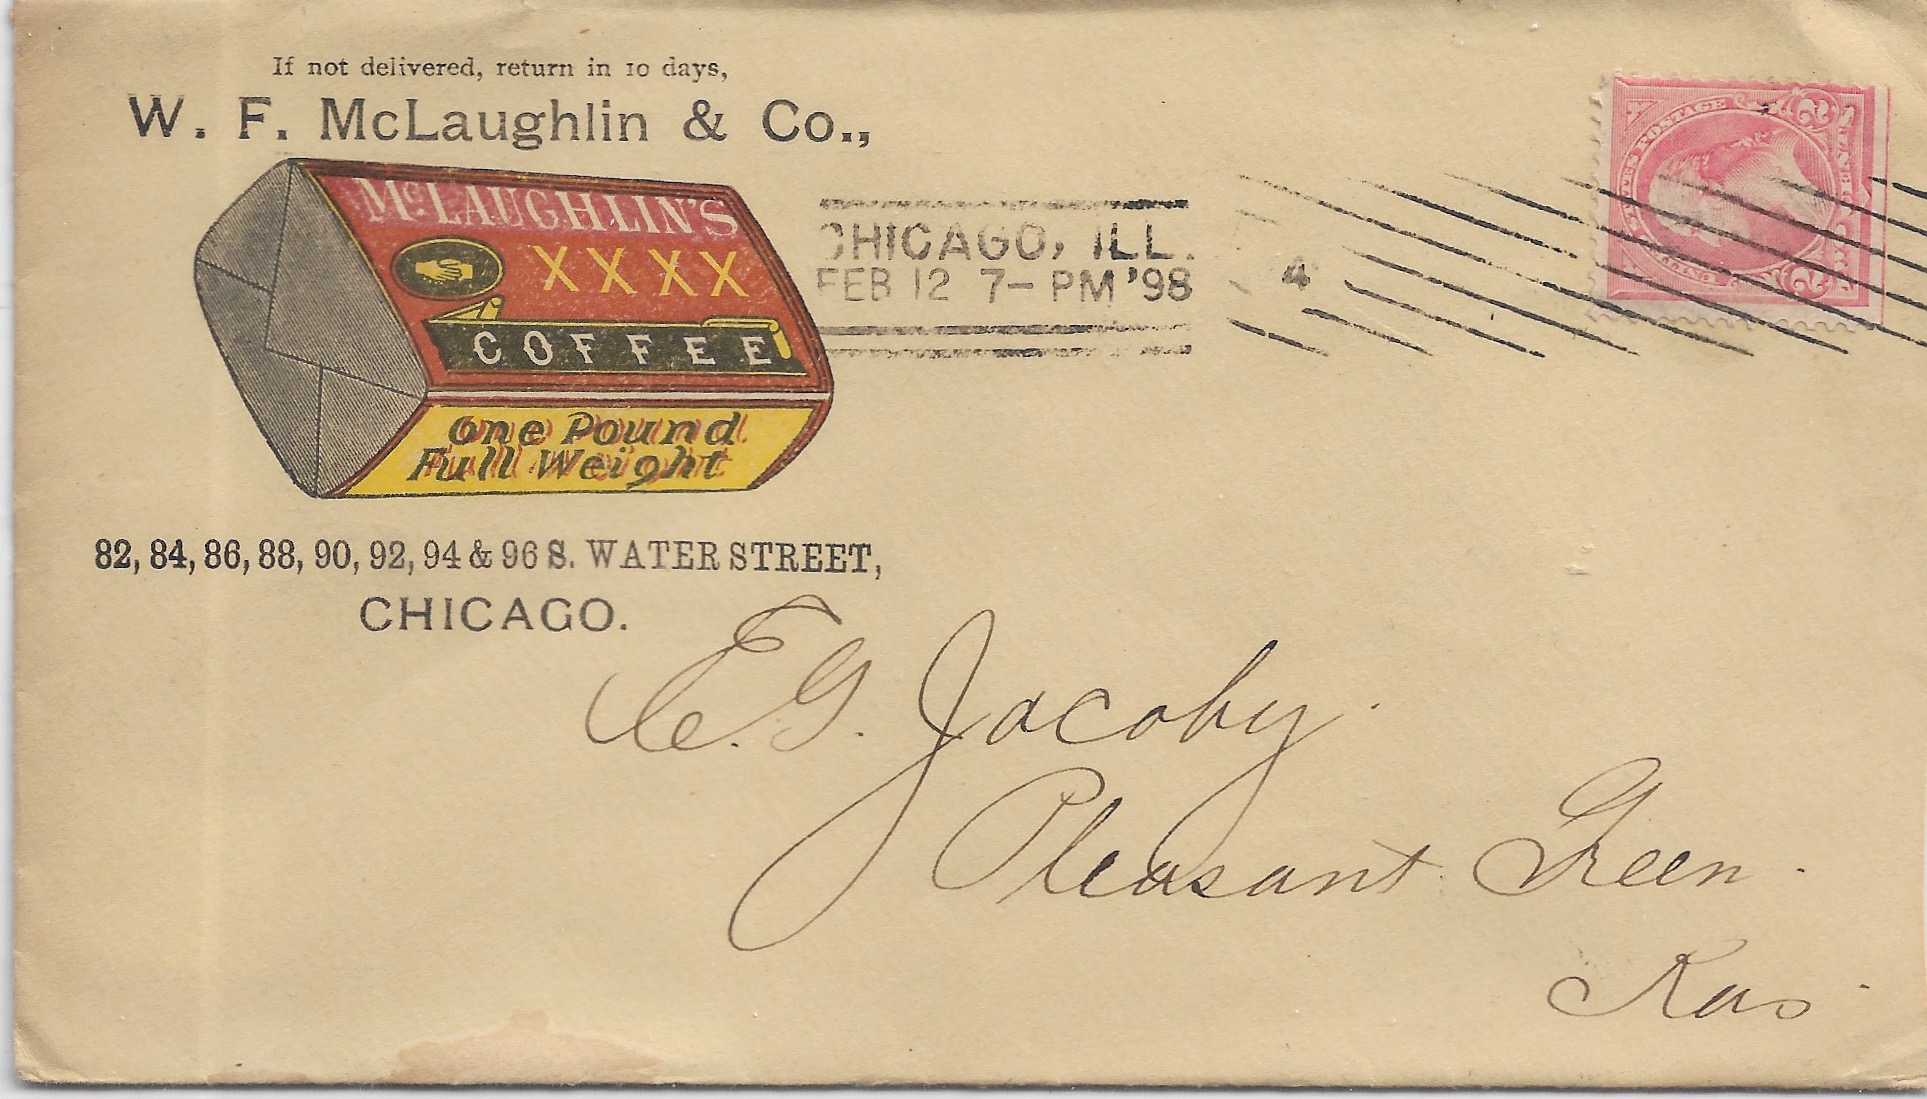 If not delivered, return in 10 days,
W. F. McLaughlin & Co.,
McLAUGHLIN'S
XXXX
COFFEE
One Pound
Full Weight
82, 84, 86, 88, 90, 92, 94 & 96 S. WATER STREET,
CHICAGO.
CHICAGO, ILL.
FEB 12 7-PM '98
4
POSTAGE
2 CENTS 2
E. G. Jacoby.
Pleasant Green.
Kas